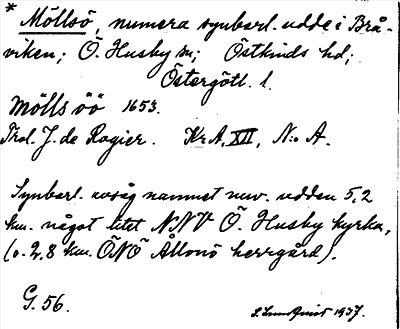 * Möllsö, numera synbarl. udde i Brå-
viken; Ö. Husby sn; Östkinds hd;
Östergötl. l.
Mölls öö 1653.
Trol. J. de Rogier. KrA, XII, N:o A.
Synbarl. avsåg namnet nuv. udden 5,2
km. något litet NNV Ö. Husby kyrka,
(o. 2,8 km. ÖNÖ Ållonö herrgård).
G. 56.
1937.